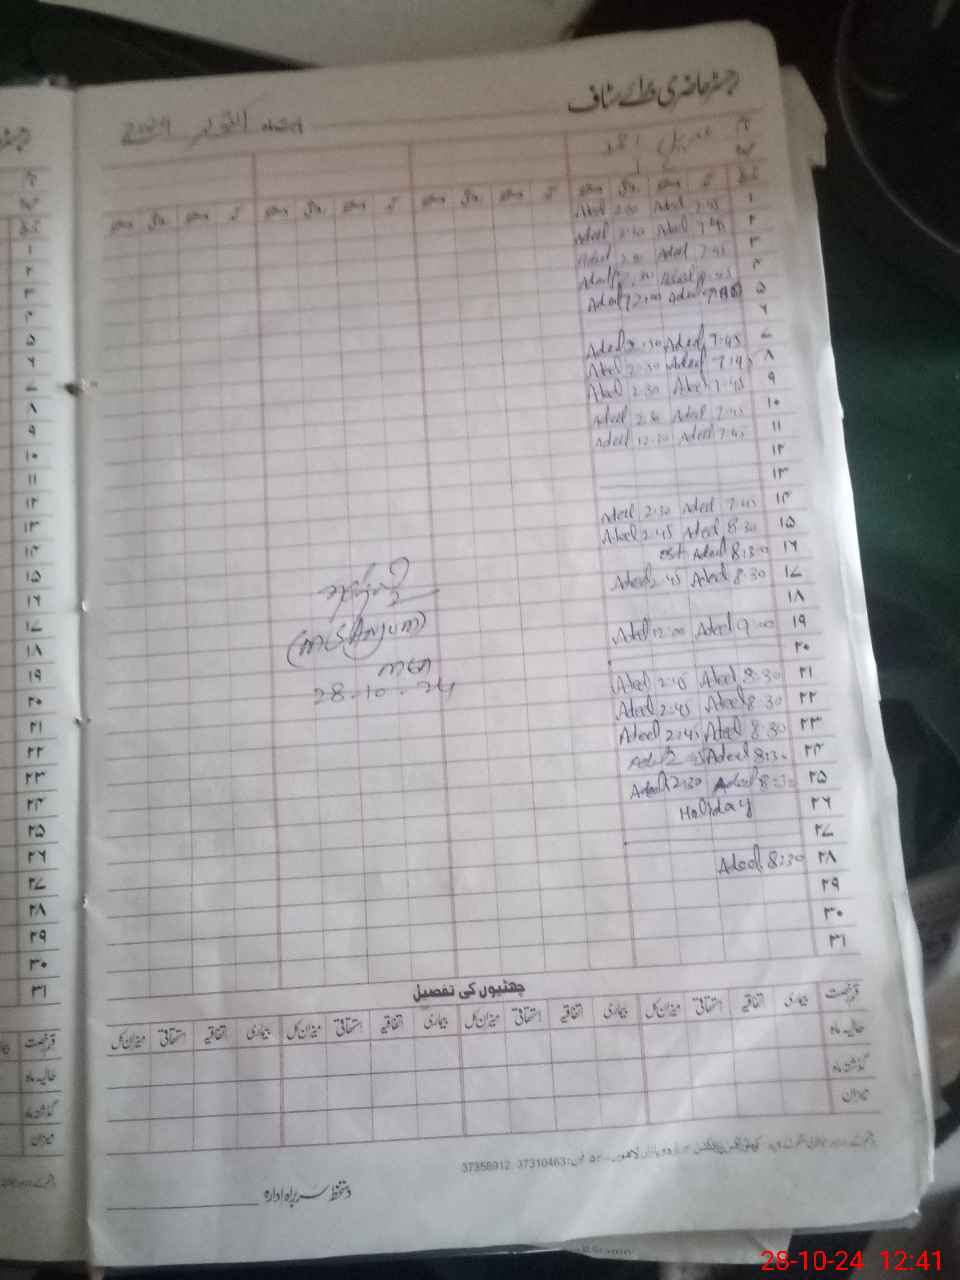 رجسٹر حاضری برائے سٹاف
بابت ماہ اکتوبر 2024
نام عدیل احمد
تاریخ آمد دستخط روانگی دستخط آمد دستخط روانگی دستخط آمد دستخط روانگی دستخط
۱ Adeel 7:45 Adeel 2:30
۲ Adeel 7:45 Adeel 2:30
۳ Adeel 7:45 Adeel 2:30
۴ Adeel Adeel
۵ Adeel Adeel 12:00
۶
۷ Adeel 7:45 Adeel 2:30
۸ Adeel 7:45 Adeel 2:30
۹ Adeel 7:45 Adeel 2:30
۱۰ Adeel 7:45 Adeel 2:30
۱۱ Adeel 7:45 Adeel 12:30
۱۲
۱۳
۱۴ Adeel 7:45 Adeel 2:30
۱۵ Adeel 8:30 Adeel 2:45
۱۶ Adeel 8:30
۱۷ Adeel 8:30 Adeel 2:45
۱۸
۱۹ Adeel 9:00 Adeel 12:00
۲۰
۲۱ Adeel 8:30 Adeel 2:45
۲۲ Adeel 8:30 Adeel 2:45
۲۳ Adeel 8:30 Adeel 2:45
۲۴ Adeel 8:30 Adeel 2:45
۲۵ Adeel 8:30 Adeel 12:30
۲۶ Holiday
۲۷
۲۸ Adeel 8:30
۲۹
۳۰
۳۱
(M.S.Anjum)
MEA
28-10-24
چھٹیوں کی تفصیل
قسم رخصت بیماری اتفاقیہ استحقاقی میزان کل بیماری اتفاقیہ استحقاقی میزان کل بیماری اتفاقیہ استحقاقی میزان کل بیماری اتفاقیہ استحقاقی میزان کل
حالیہ ماہ
گذشتہ ماہ
میزان
37310463, 37358912
دستخط سربراہ ادارہ
28-10-24 12:41